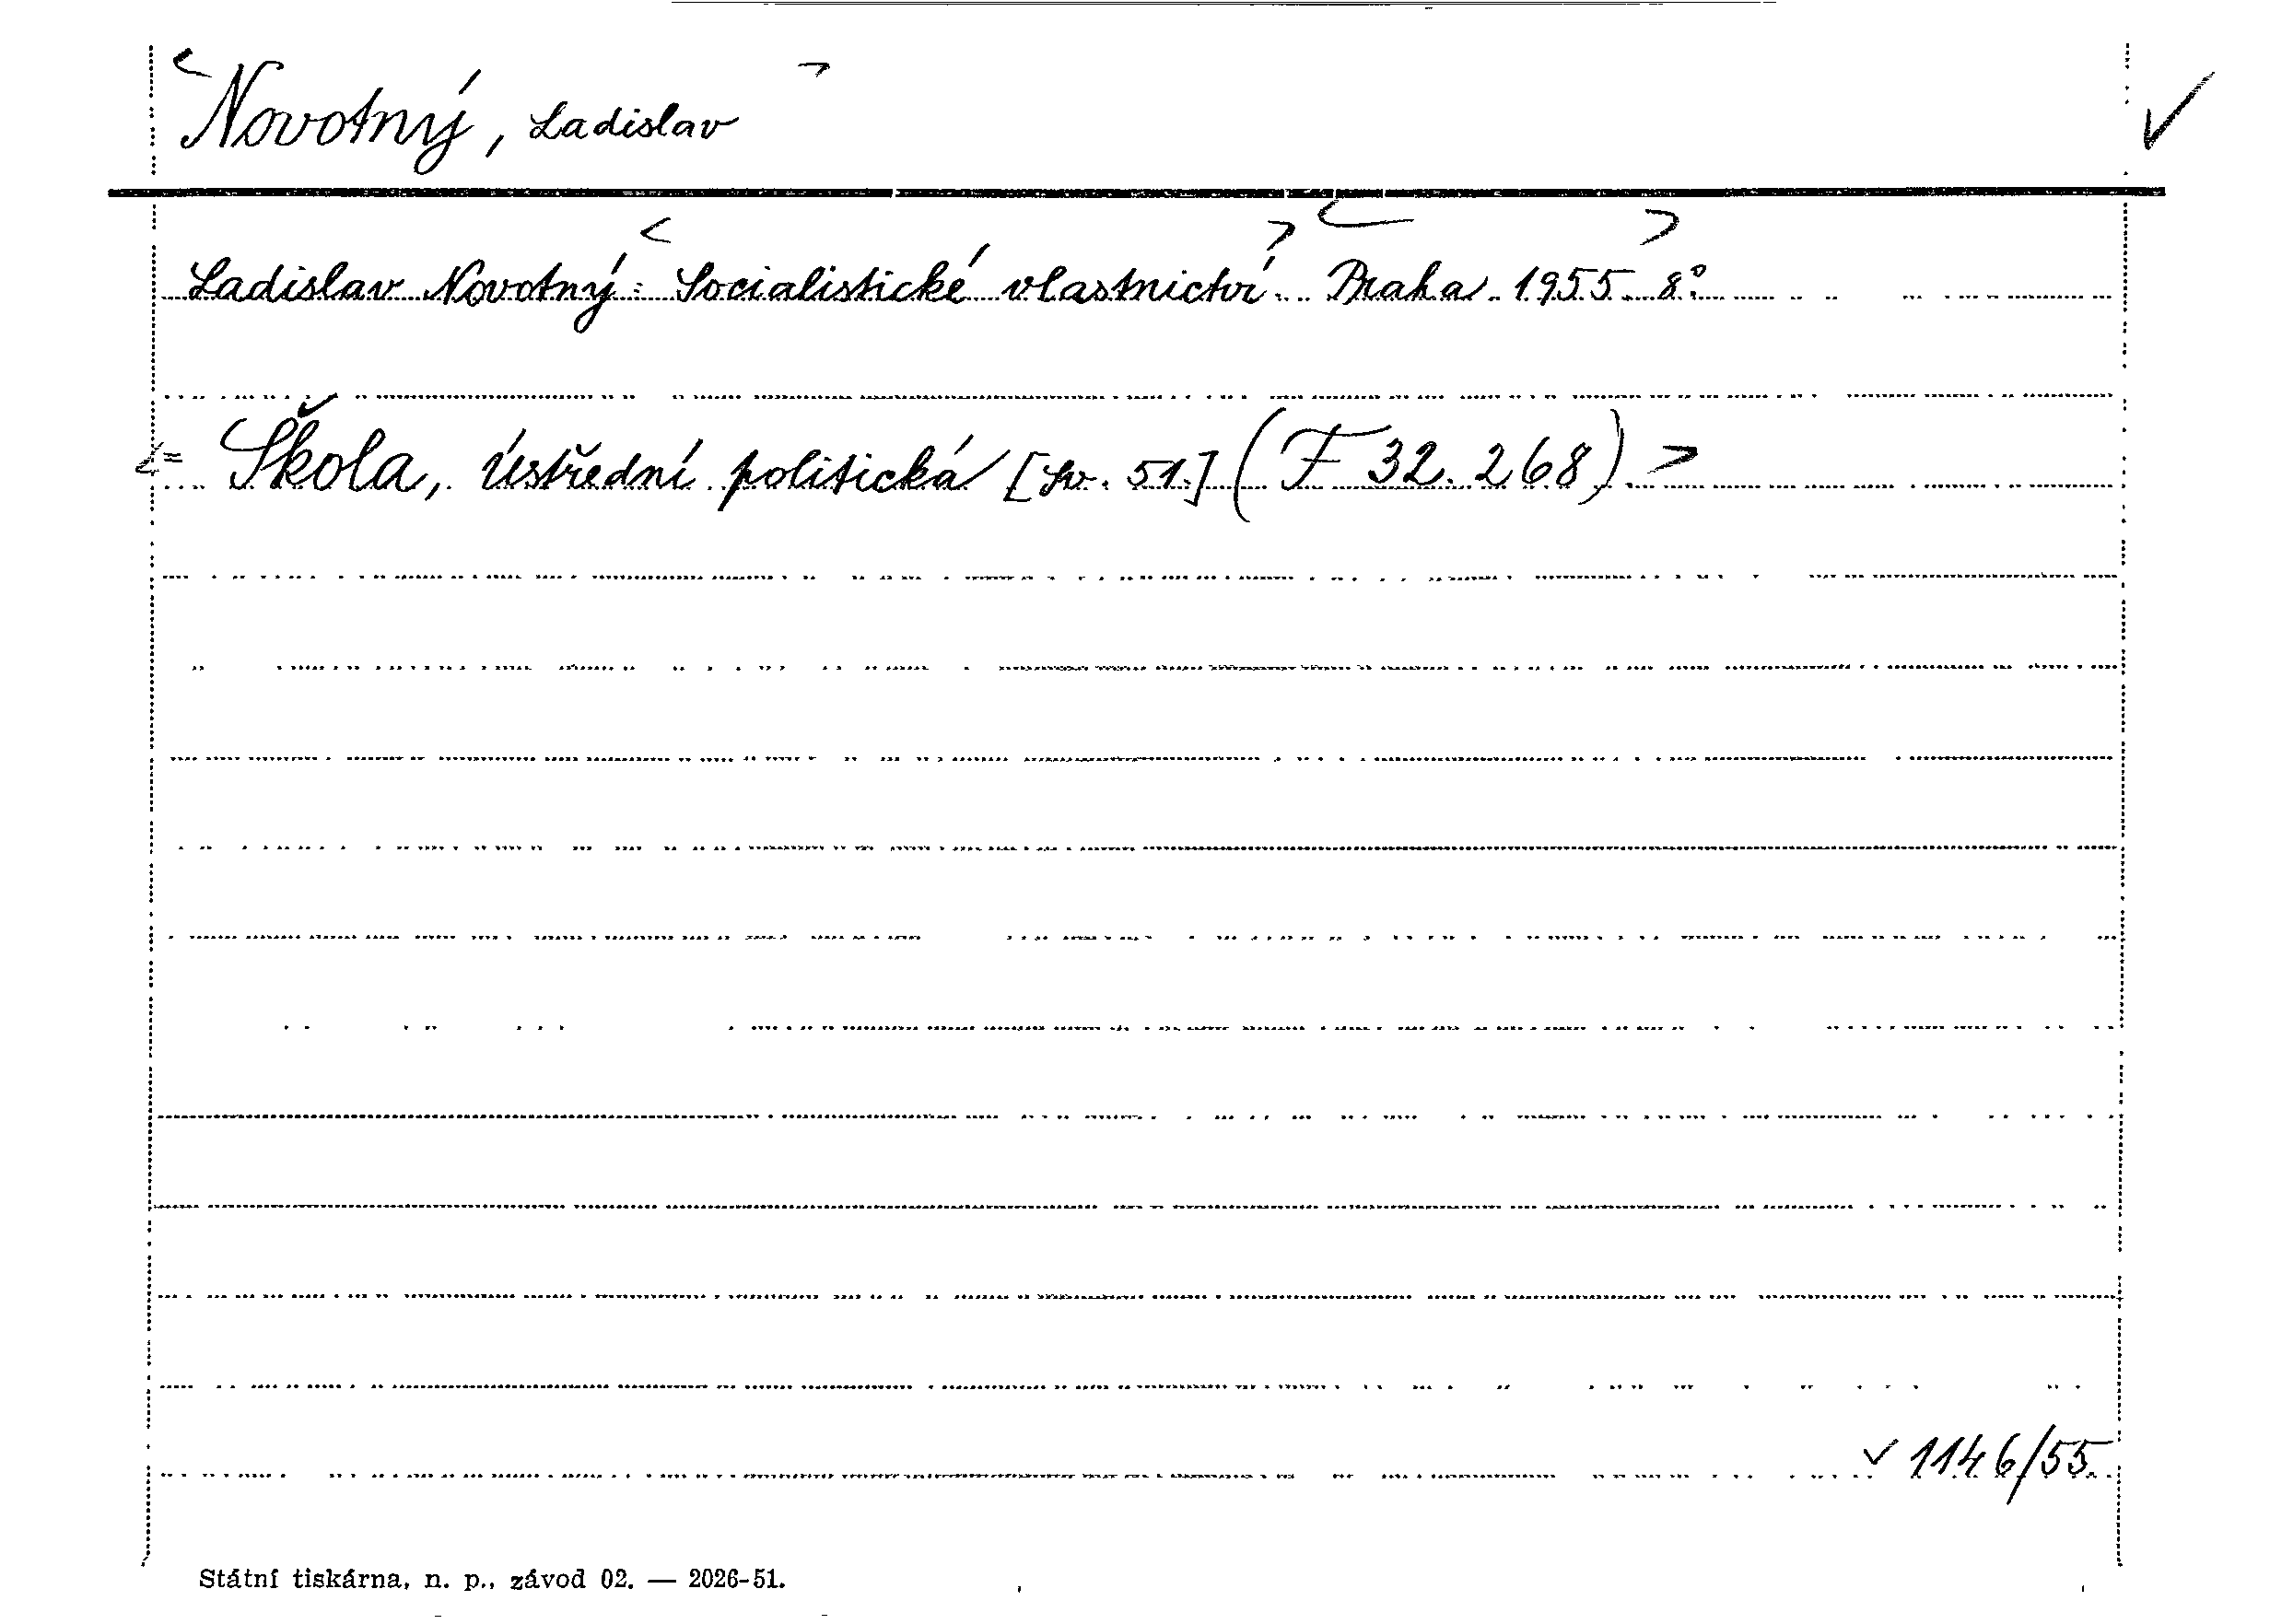 <Novotný, Ladislav> ✓
Ladislav Novotný: <Socialistické vlastnictví.> <Praha> 1955. 8°.
<= Škola, ústřední politická [sv. 51.] (F 32.268).>
✓ 1146/55.
Státní tiskárna, n. p., závod 02. — 2026-51.